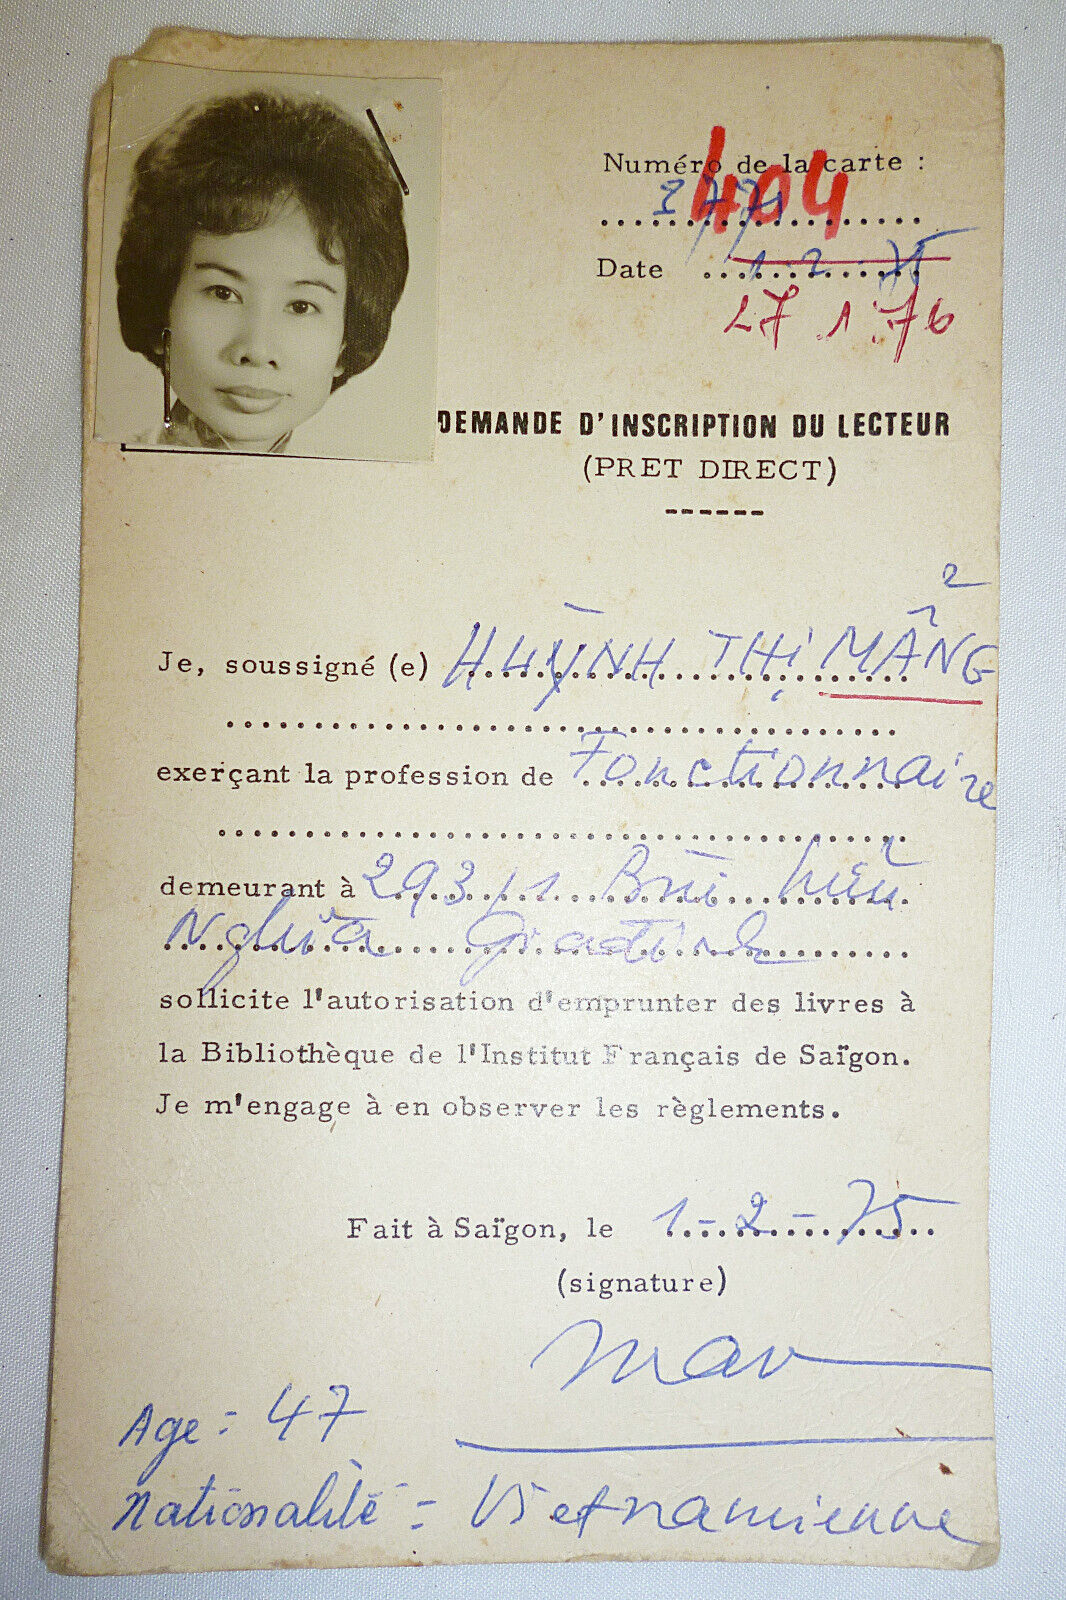 Numéro de la carte :
404
Date 1.2.75
27.1.76
DEMANDE D'INSCRIPTION DU LECTEUR
(PRET DIRECT)
------
2
Je, soussigné (e) HUỲNH THỊ MẪNG
exerçant la profession de Fonctionnaire
demeurant à 293/1 Bùi hữu
Nghĩa Gia định
sollicite l'autorisation d'emprunter des livres à
la Bibliothèque de l'Institut Français de Saïgon.
Je m'engage à en observer les règlements.
Fait à Saïgon, le 1-2-75
(signature)
Age = 47
Nationalité = Vietnamienne